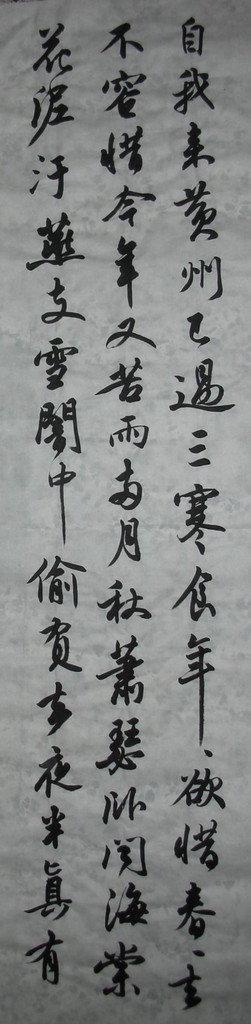 自我来黄州已過三寒食年、欲惜春、去
不容惜今年又苦雨两月秋蕭瑟卧闻海棠
花泥汙燕支雪闇中偷負去夜半真有